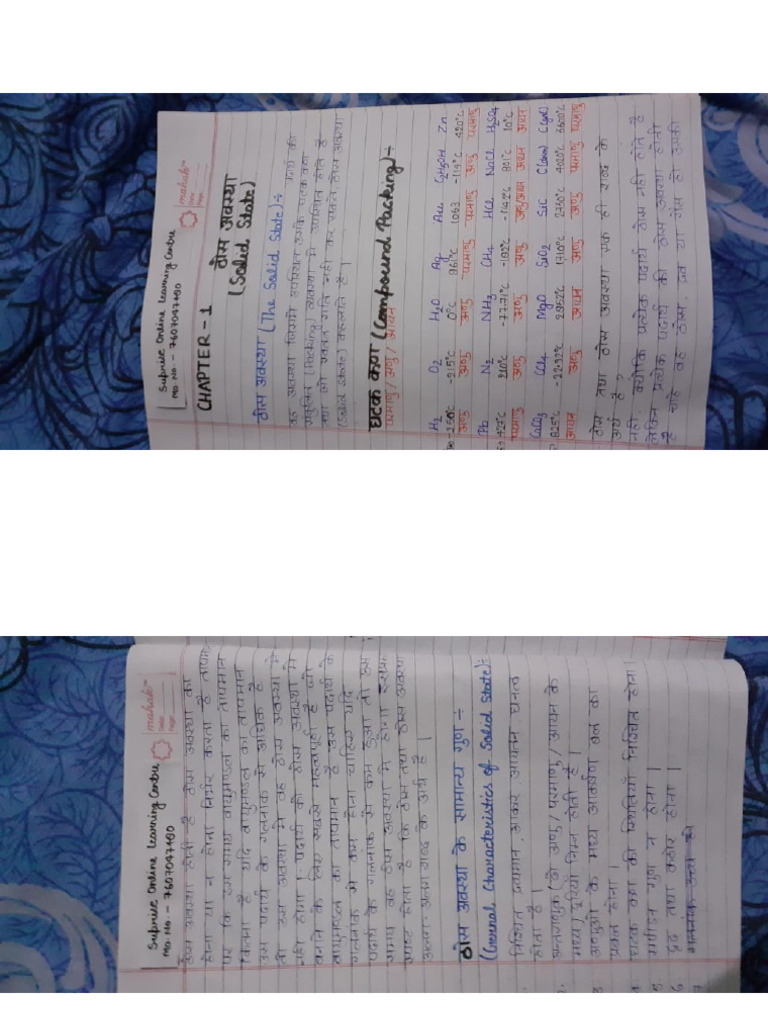 Suprise Online Learning Centre
Mo. No. - 7607047490
mahak
Date:
Page:
CHAPTER - 1
ठोस अवस्था
(Solid State)
ठोस अवस्था (The Solid State) ÷
वह अवस्था जिसमें उपस्थित उसके घटक कण
संकुलित (Packing) व्यवस्था में उपस्थित होते हैं
तथा जो स्वतंत्र गति नहीं कर पाते, ठोस अवस्था
(Solid State) कहलाते हैं।
घटक कण (Compound Packing) ÷
परमाणु / अणु / आयन
H2 O2 H2O Ag Au C2H5OH Zn
-215°C 0°C 961°C 1063 -114°C 420°C
अणु अणु अणु परमाणु परमाणु अणु परमाणु
Pb N2 NH3 CH4 HCl NaCl H2SO4
210°C -77.71°C -182°C -114.2°C 801°C 10°C
परमाणु अणु अणु अणु अणु/आयन आयन आयन
CaCO3 CCl4 MgO SiO2 SiC C(dim) C(gr)
825°C -22.92°C 2852°C 1710°C 2730°C 4000°C 3600°C
आयन अणु आयन अणु अणु परमाणु
ठोस तथा ठोस अवस्था एक ही शब्द के
अर्थ है?
नहीं, क्योंकि प्रत्येक पदार्थ ठोस नहीं होते है
लेकिन प्रत्येक पदार्थ की ठोस अवस्था होती
है चाहे वह ठोस, द्रव या गैस हो उसकी
Suprise Online Learning Centre
Mo. No. - 7607047490
mahak
Date:
Page:
ठोस अवस्था होती है ठोस अवस्था का
होना या न होना निर्भर करता है तापमान
पर कि उस समय वायुमण्डल का तापमान
कितना है यदि वायुमण्डल का तापमान
उस पदार्थ के गलनांक से अधिक है
तो उस अवस्था में वह ठोस अवस्था में
नहीं होगा। पदार्थ को ठोस अवस्था में
बनाने के लिए सबसे महत्वपूर्ण है जो
वायुमण्डल का तापमान है उस पदार्थ के
गलनांक से कम होना चाहिए यदि
पदार्थ के गलनांक से कम हुआ तो उस
समय वह ठोस अवस्था में होगा इससे
स्पष्ट होता है कि ठोस तथा ठोस अवस्था
अलग-अलग शब्द के अर्थ है।
ठोस अवस्था के सामान्य गुण ÷
(General Characteristics of Solid State) ÷
निश्चित द्रव्यमान, आकार, आयतन, घनत्व
होता है।
2. अन्तराणुक (दो अणु / परमाणु / आयन के
मध्य) दूरियाँ निम्न होती है।
3 अणुओं के मध्य आकर्षण बल का
प्रबल होना।
4. घटक कण की स्थितियाँ निश्चित होना।
5. संपीडन गुण न होना।
6 दृढ़ तथा कठोर होना।
7